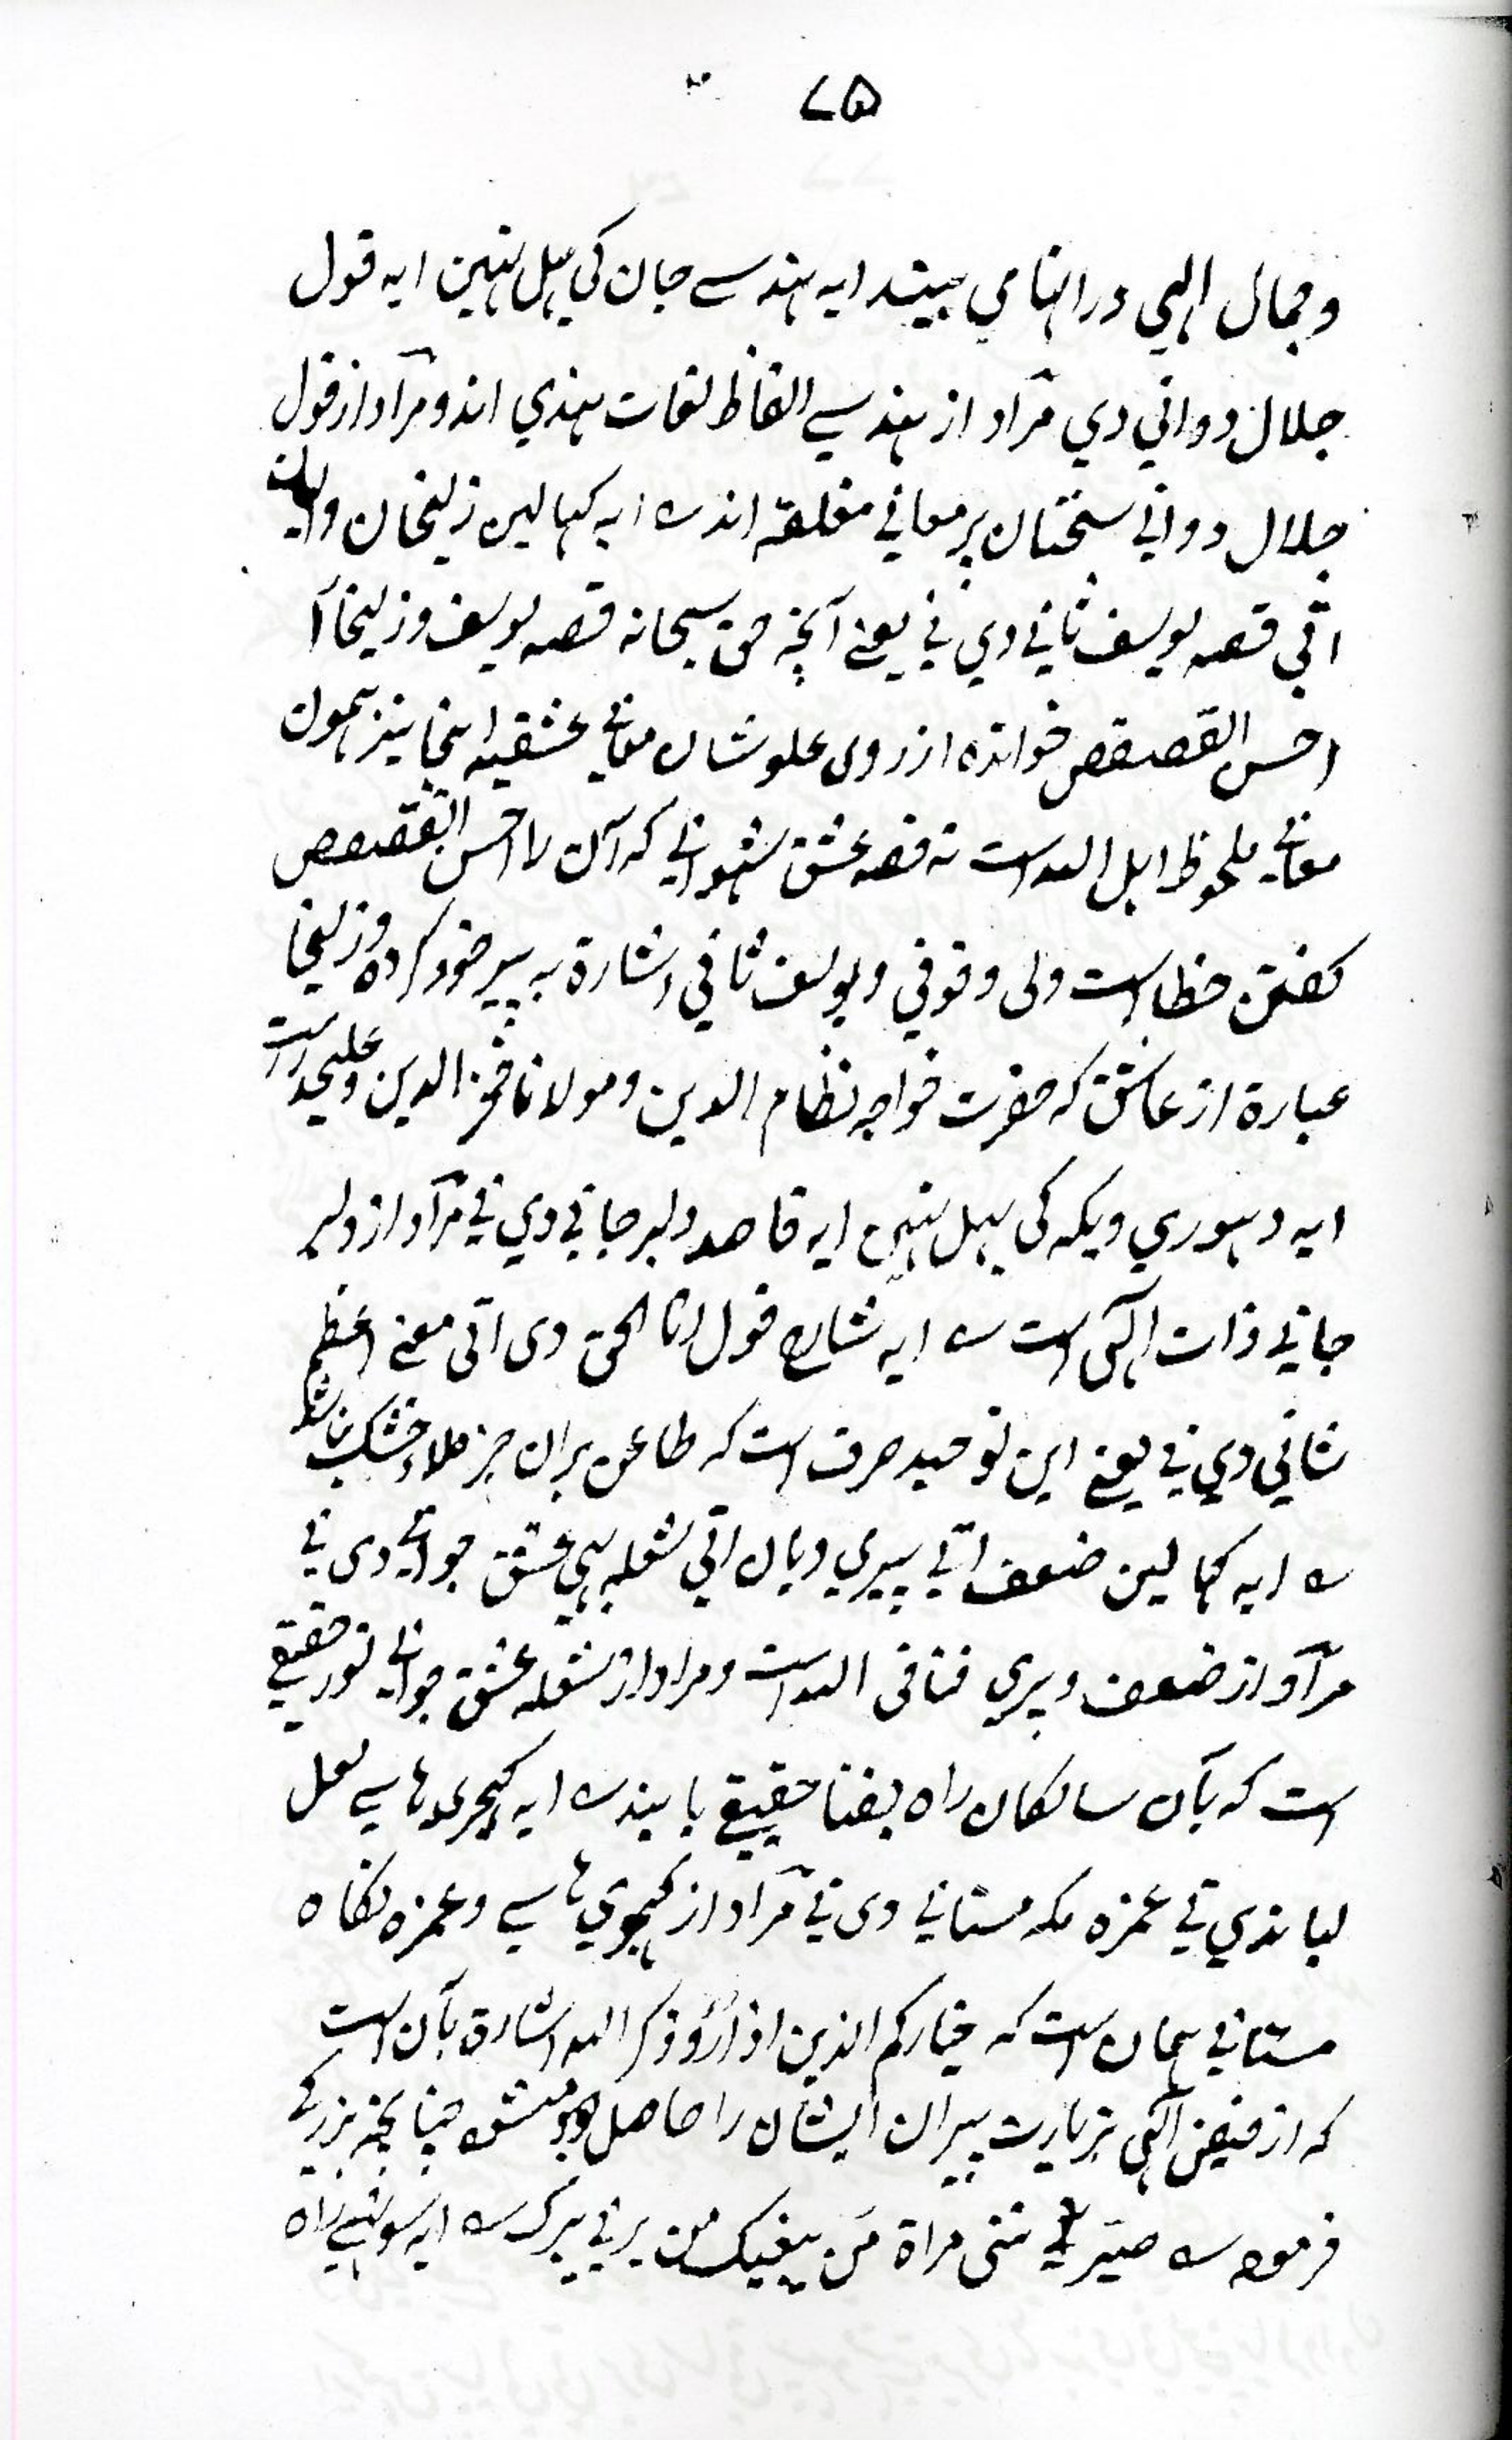 ۷۵
وجمال الہی در انہا می بینند ایہ ہندسے جان کی بہل نہین ایہ قول
جلال دوانی دی مراد از ہندسے الفاظ لغات ہندی اند و مراد از قول
جلال دوانی سخنان پر معانی مغلقہ اند ؎ ایہ کہالین زلیخان
اتی قصہ یوسف ثانی دی نی یعنے آنچہ حق سبحانہ قصہ یوسف و زلیخا آ
احسن القصص خواندہ از روی علو شان معانے عشقیہ اینجا نیز ہمون
معانے ملحوظ اہل اللہ است نہ قصہ عشق شہوانے کہ آن را احسن القصص
گفتن خطا است ولی وقوفی و یوسف ثانی اشارۃ بہ پیر خود کردہ و زلیخا
عبارۃ از عاشق کہ حضرت خواجہ نظام الدین و مولانا فخر الدین
ایہ دہوری ویکہ کی بہل نہین ایہ قاصد دلبر جانی دی نی مراد از دلبر
جانے ذات الٓہی است ؎ ایہ شارح قول انا الحق دی اتی معنے اعظم
شانی دی نی یعنے این توحید صرف است کہ طاعن بران جز ملاء خشک نباشد
؎ ایہ کہا لین ضعف اتی پیری دیان اتی شعلہ ہی عشق جوانے دی نی
مراد از ضعف و پیری فنا فی اللہ است و مراد از شعلہ عشق جوانے نور حقیقے
است کہ بآن سالکان راہ بفنا حقیقے یابند ؎ ایہ کجہری ہاسے لعل
لباندی تی غمزہ نکہ مستانے دی نی مراد از کجہری ہاسے و غمزہ نگاہ
مستانے ہمان است کہ خیارکم الذین اذا رؤو ذکر اللہ اشارۃ بآن است
کہ از فیض الٓہی بزیارت پیران ایشان را حاصل میشود چنانچہ بزرگے
فرمودہ ؎ صیرتنی مراۃ من یبغیک من یرنی یرک ؎ ایہ سوہنے راہ